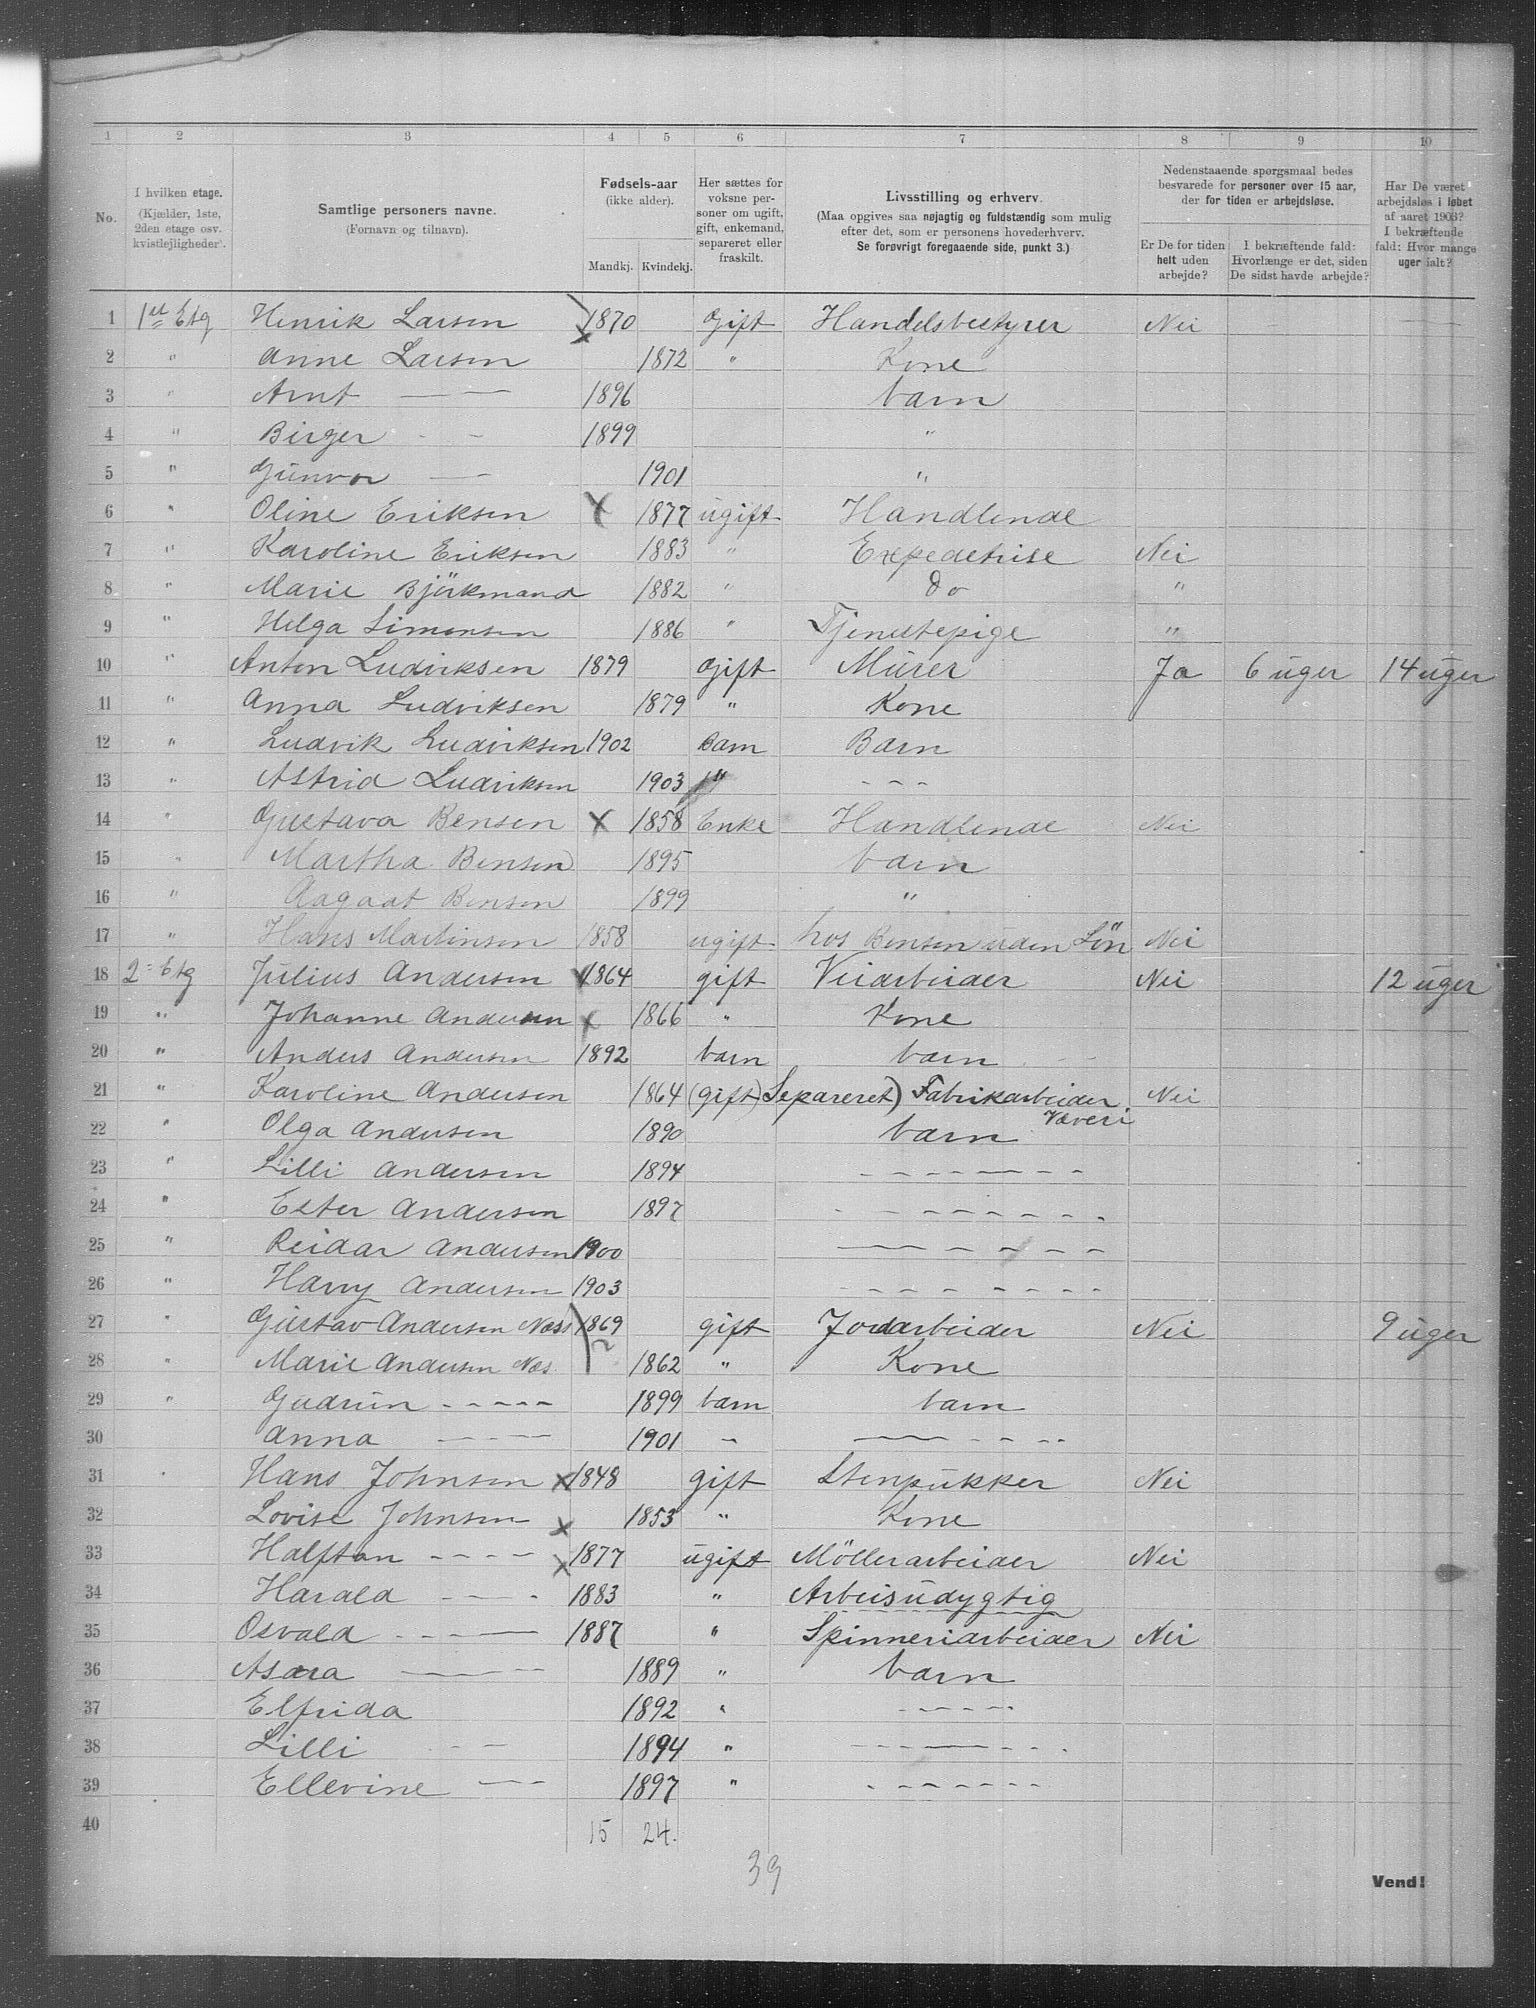 1 2 3 4 5 6 7 8 9 10
No.
I hvilken etage.
(Kjælder, 1ste,
2den etage osv.
kvistlejligheder).
Samtlige personers navne.
(Fornavn og tilnavn).
Fødsels-aar
(ikke alder).
Mandkj. Kvindekj.
Her sættes for
voksne per-
soner om ugift,
gift, enkemand,
separeret eller
fraskilt.
Livsstilling og erhverv.
(Maa opgives saa nøjagtig og fuldstændig som mulig
efter det, som er personens hovederhverv.
Se forøvrigt foregaaende side, punkt 3.)
Nedenstaaende spørgsmaal bedes
besvarede for personer over 15 aar,
der for tiden er arbejdsløse.
Er De for tiden
helt uden
arbejde?
I bekræftende fald:
Hvorlænge er det, siden
De sidst havde arbejde?
Har De været
arbejdsløs i løbet
af aaret 1903?
I bekræftende
fald: Hvor mange
uger ialt?
1 1st Etg Henrik Larsen 1870 Gift Handelsbestyrer Nei — —
2 " Anne Larsen 1872 " Kone
3 " Arnt — — 1896 barn
4 " Birger - - 1899 "
5 " Gunvor — 1901 "
6 " Oline Eriksen X 1877 ugift Handlende
7 " Karoline Eriksen 1883 " Expedetrise Nei
8 " Marie Björkmand 1882 " Do "
9 " Helga Simonsen 1886 " Tjenestepige "
10 " Anton Ludviksen 1879 Gift Murer Ja 6 uger 14 uger
11 " Anna Ludviksen 1879 " Kone
12 " Ludvik Ludviksen 1902 Barn Barn
13 " Astrid Ludviksen 1903 " - - -
14 " Gustava Bensen X 1858 Enke Handlende Nei
15 " Martha Bensen 1895 barn
16 " Aagaat Bensen 1899 "
17 " Hans Martinsen 1858 ugift hos Bensen uden Lön Nei
18 2 Etg Julius Andersen 1864 gift Veiarbeider Nei 12 uger
19 " Johanne Andersen x 1866 " Kone
20 " Anders Andersen 1892 barn barn
21 " Karoline Andersen 1864 (gift) Separeret) Fabrikarbeider Nei
Væveri
22 " Olga Andersen 1890 barn
23 " Lilli Andersen 1894 - - - - - - -
24 " Ester Andersen 1897 - - - - - - -
25 " Reidar Andersen 1900 - - - - - -
26 " Harry Andersen 1903 - - - - - - -
27 " Gustav Andersen Næss 1869 gift Jordarbeider Nei 9 uger
28 " Marie Andersen Næs 1862 " Kone
29 " Gudrun - - - - - 1899 barn barn
30 Anna - - - - 1901 " - - - - -
31 " Hans Johnsen x 1848 gift Stenpukker Nei
32 Lovise Johnsen x 1853 " Kone
33 Halftan - - - - x 1877 ugift Möllerarbeider Nei
34 Harald - - - 1883 " Arbeisudygtig
35 Osvald - - — 1887 " Spinneriarbeider Nei
36 Asara - - - - 1889 " barn
37 Elfrida 1892 " - - - - -
38 Lilli - - - 1894 " - - - - - - -
39 Ellevine — - 1897 " - - - - - - -
40 15 24.
39
Vend!